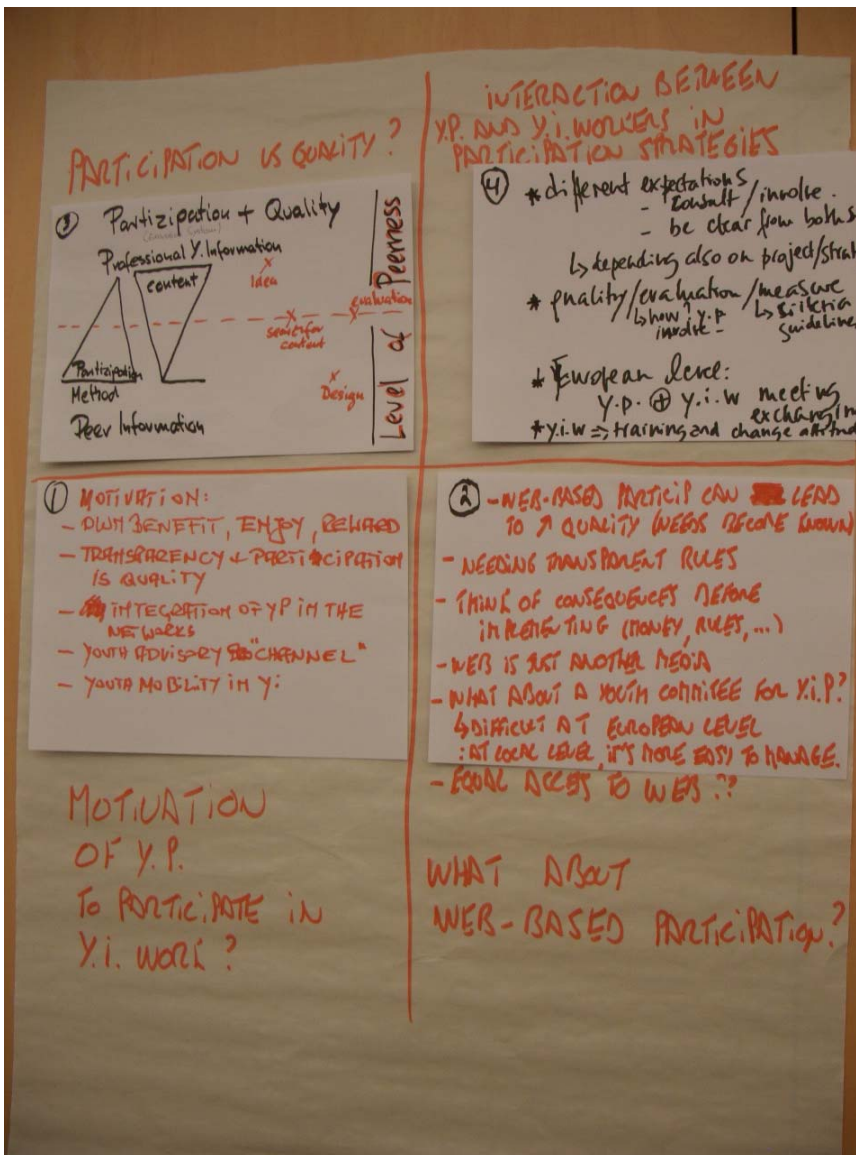 PARTICIPATION VS QUALITY?
③ Partizipation + Quality
Professional Y. Information
content
Partizipation
Method
Peer Information
x
Idea
x
search for
content
x
evaluation
x
Design
Level of Peerness
INTERACTION BETWEEN
Y.P. AND Y.I. WORKERS IN
PARTICIPATION STRATEGIES
④ * different expectations
- consult / involve.
- be clear from both s
↳ depending also on project/strat
* quality/evaluation/measure
↳ how y.p
involve -
↳
guideline
* European level:
y.p. ⊕ y.i.w meeting
exchangin
* y.i.w => training and change attitud
① MOTIVATION:
- OWN BENEFIT, ENJOY, REWARD
- TRANSPARENCY + PARTICIPATION
IS QUALITY
- INTEGRATION OF YP IN THE
NETWORKS
- YOUTH ADVISORY "CHANNEL"
- YOUTH MOBILITY IN Yi
MOTIVATION
OF Y.P.
TO PARTICIPATE IN
Y.I. WORK?
② - WEB-BASED PARTICIP CAN LEAD
TO ↗ QUALITY (NEEDS BECOME KNOWN)
- NEEDING TRANSPARENT RULES
- THINK OF CONSEQUENCES BEFORE
IMPLEMENTING (MONEY, RULES, ...)
- WEB IS JUST ANOTHER MEDIA
- WHAT ABOUT A YOUTH COMMITEE FOR Y.I.P?
↳ DIFFICULT AT EUROPEAN LEVEL
: AT LOCAL LEVEL, IT'S MORE EASY TO MANAGE.
- EQUAL ACCESS TO WEB ??
WHAT ABOUT
WEB-BASED PARTICIPATION?